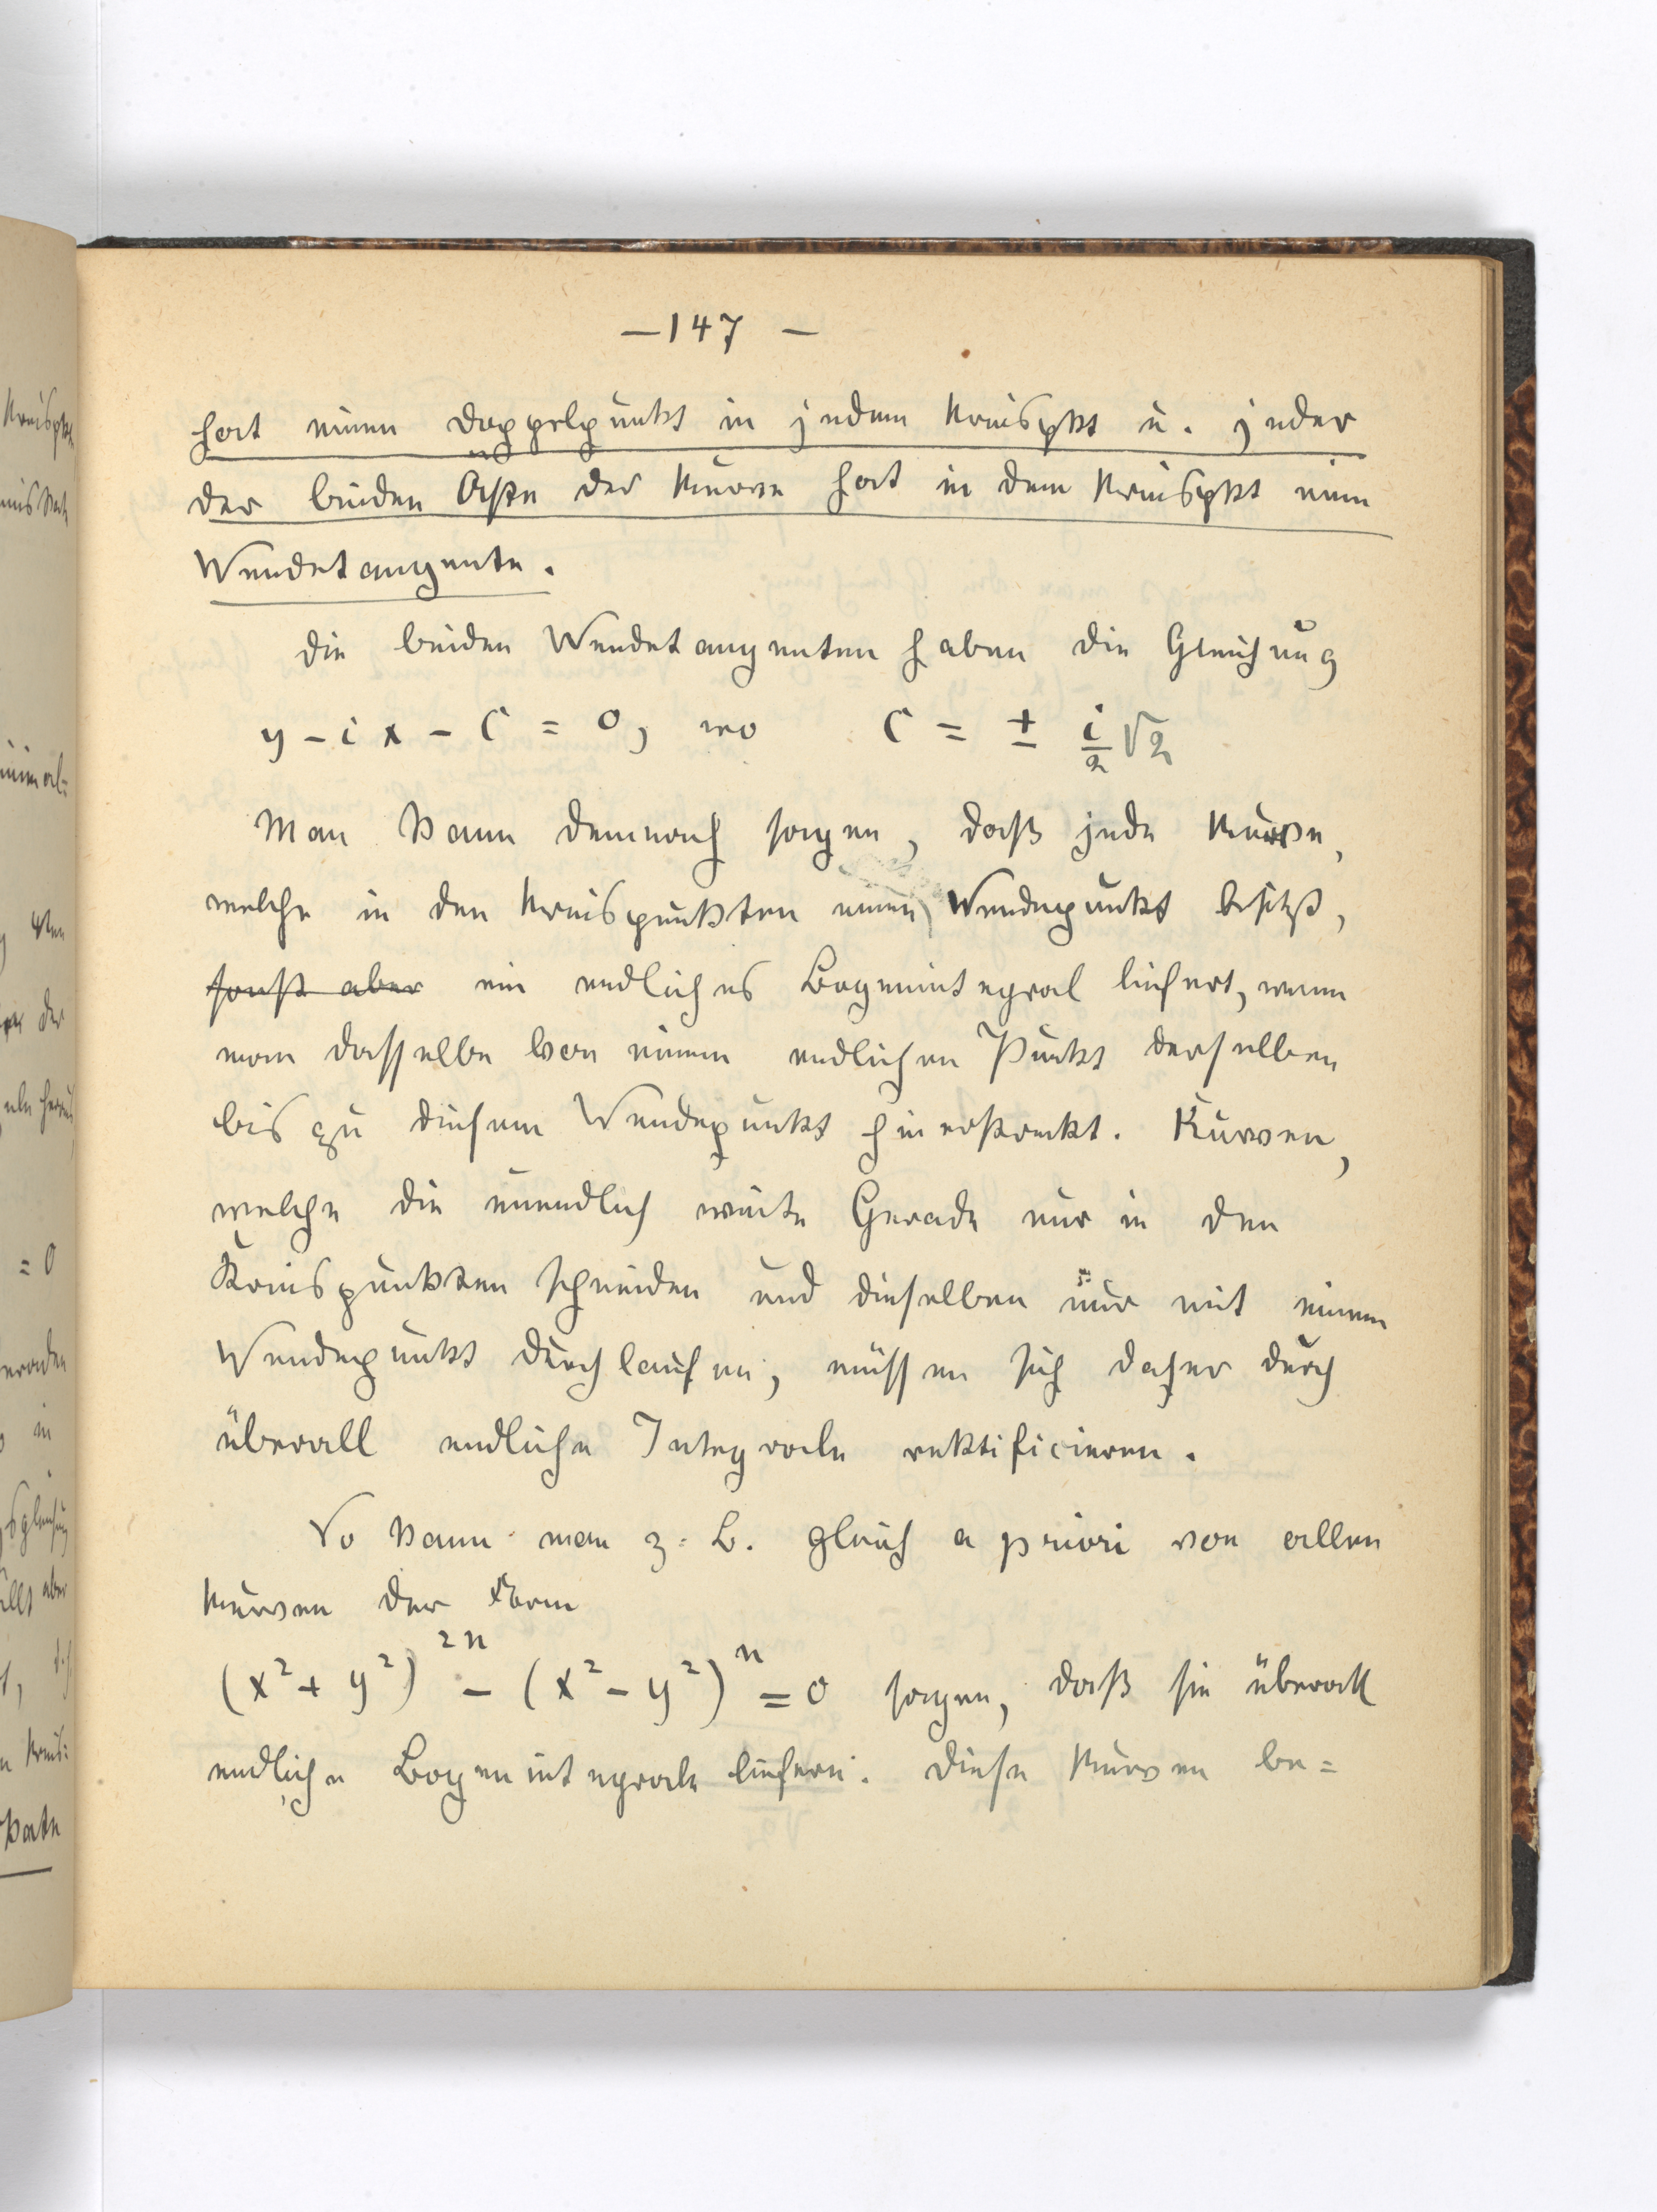 — 147 —
hat einen Doppelpunkt in jedem Kreispkt u. jeder
der beiden Äste der Kurve hat in dem Kreispkt eine
Wendetangente.
Die beiden Wendetangenten haben die Gleichung
y - ix - C = 0, wo C = ± i/2 √2
Man kann demnach sagen, daß jede Kurve,
welche in den Kreispunkten einen Wendepunkt besitzt,
sonst aber ein endliches Bogenintegral liefert, wenn
man dasselbe von einem endlichen Punkt derselben
bis zu diesem Wendepunkt hinerstreckt. Kurven,
welche die unendlich weite Gerade nur in den
Kreispunkten schneiden und dieselben nur mit einem
Wendepunkt durchlaufen, müssen sich daher durch
überall endliche Integrale rektificieren.
So kann man z. B. gleich a priori von allen
Kurven der Form
(x² + y²)²ⁿ - (x² - y²)ⁿ = 0 sagen, daß sie überall
endliche Bogenintegrale liefern. Diese Kurven be=